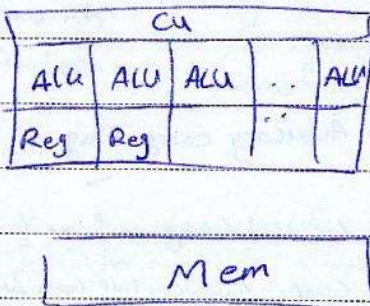 CU
ALU ALU ALU .. ALU
Reg Reg ..
Mem